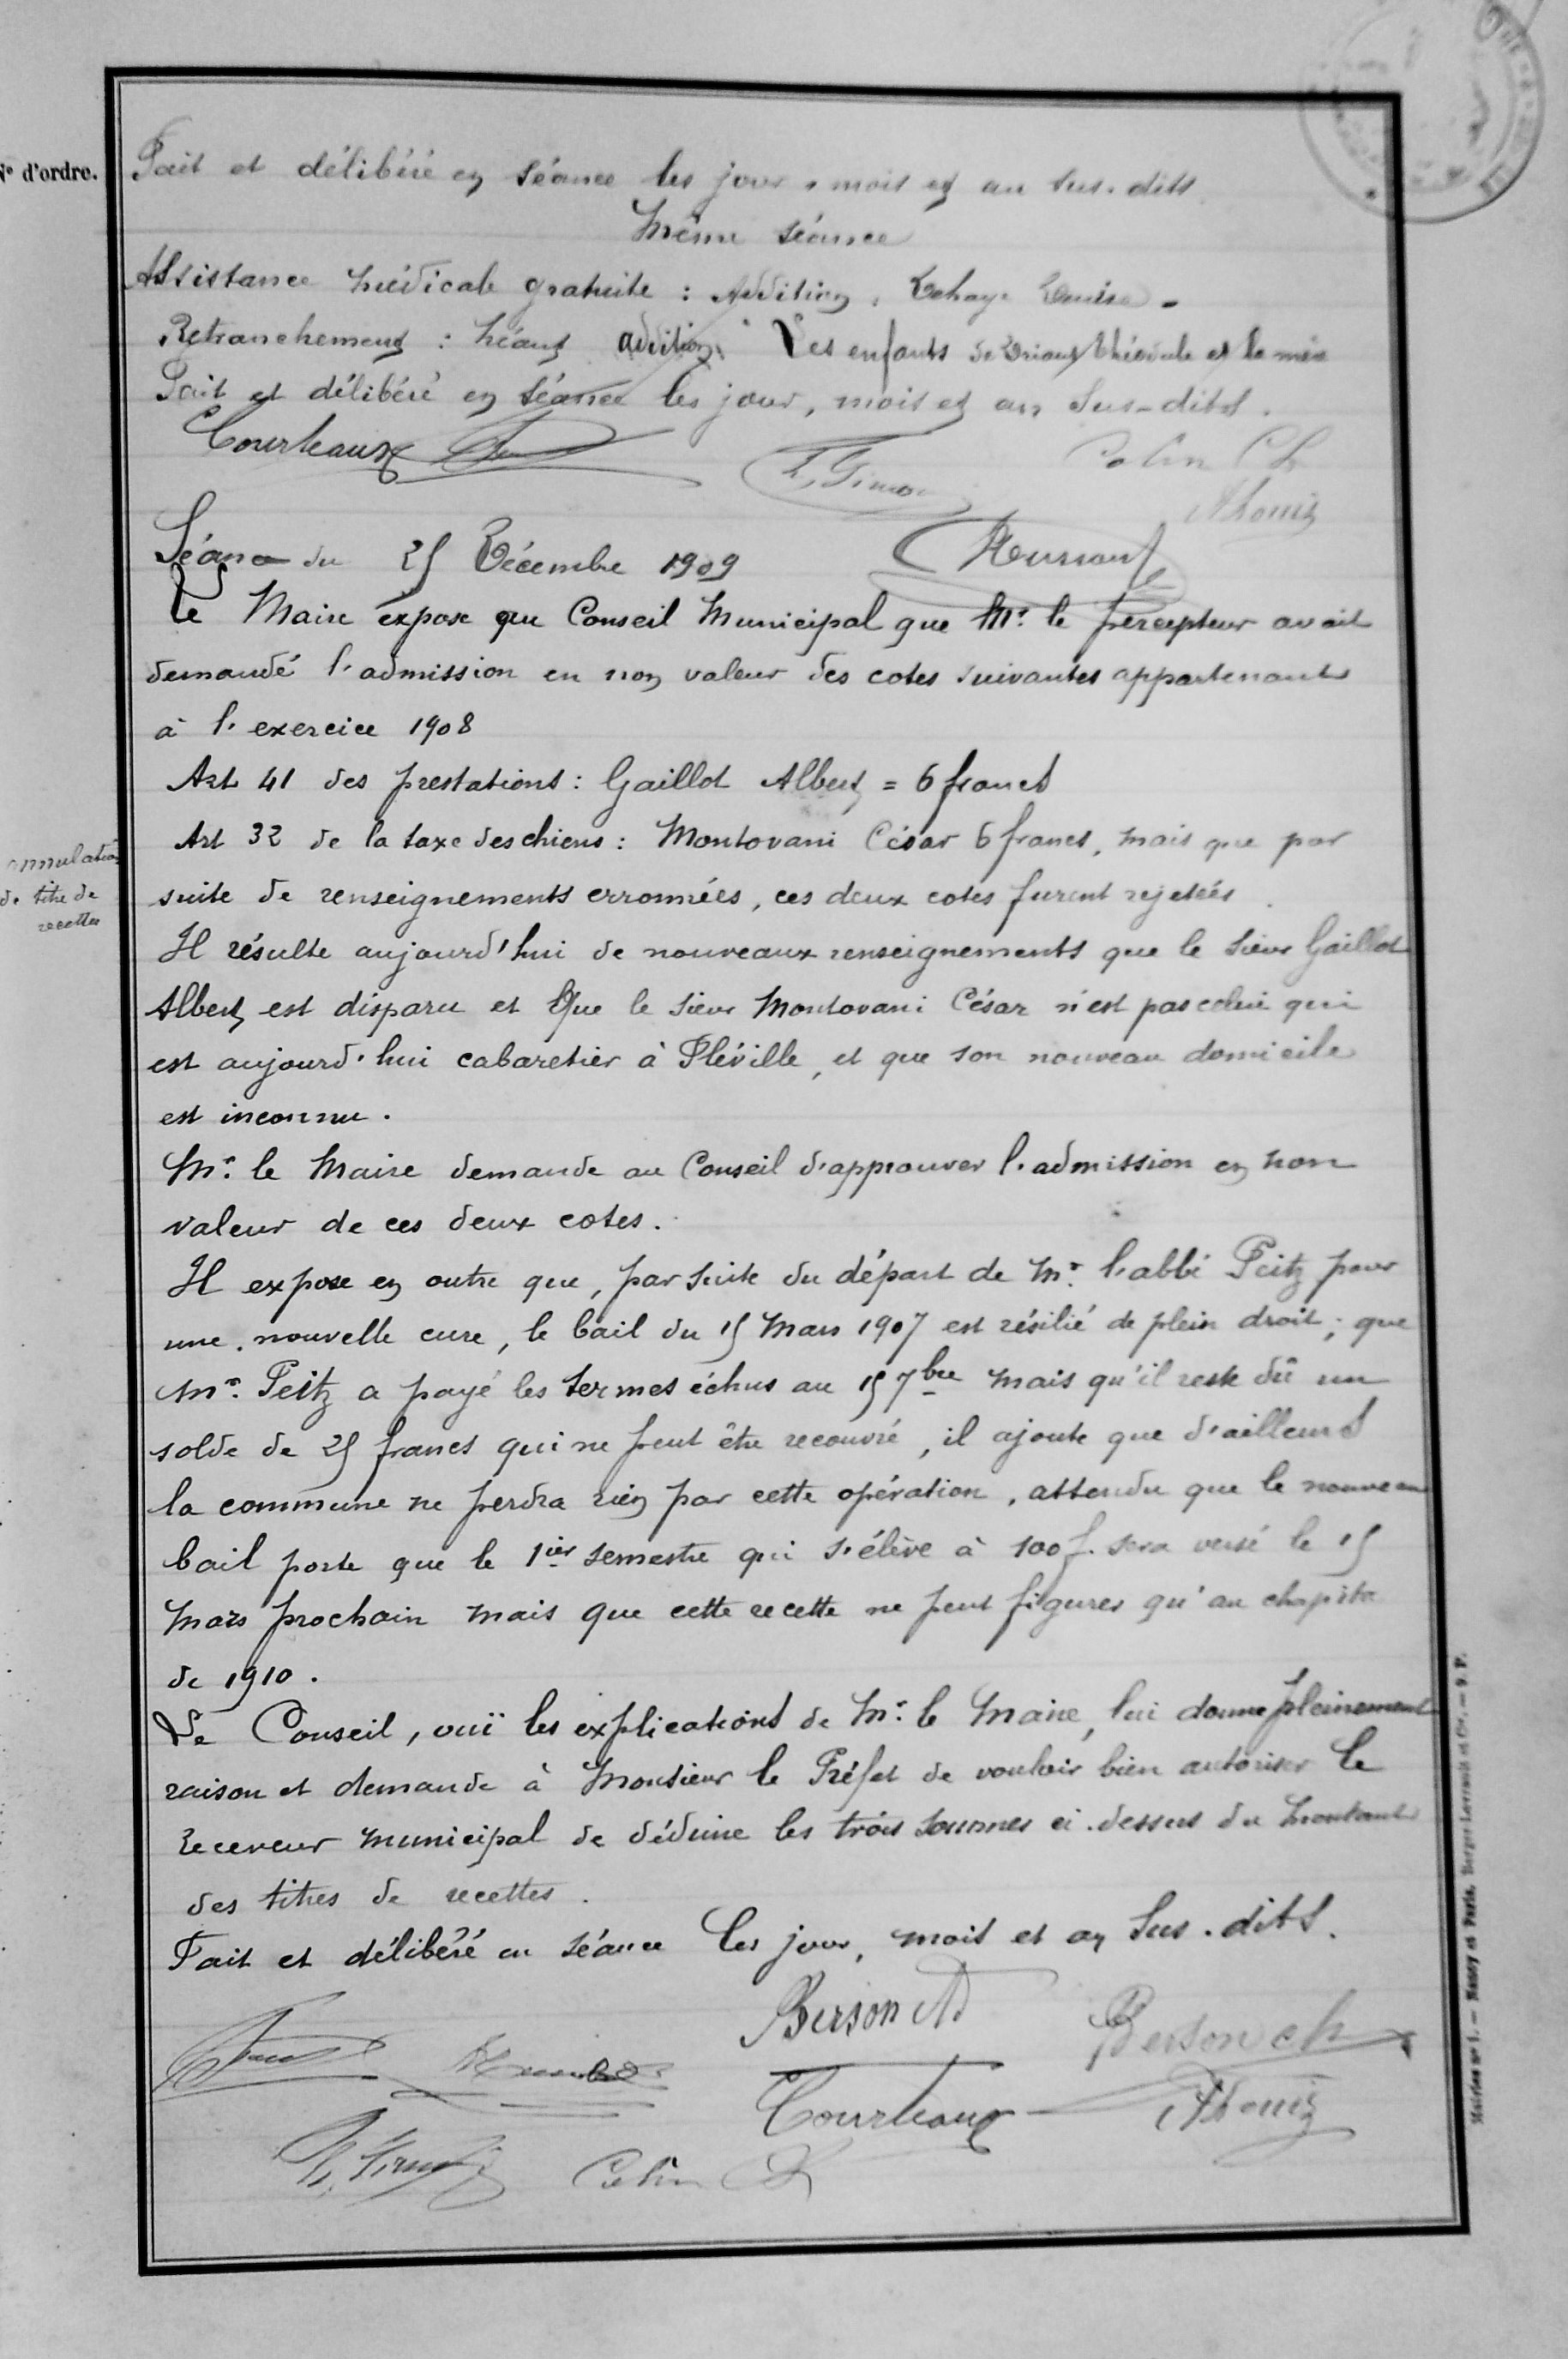 N° d'ordre.
Fait et délibéré en séance les jour, mois et an sus-dits
Même séance
Assistance médicale gratuite : Addition : Dehaye Denise -
Retranchement : Néant addition Les enfants de Briont Théodule et la mère
Fait et délibéré en séance les jour, mois et an sus-dits.
Courteaux
Colin Ch
Séance du 25 Décembre 1909
Le Maire expose au Conseil Municipal que Mr. le percepteur avait
demandé l'admission en non valeur des cotes suivantes appartenants
à l'exercice 1908
Art 41 des prestations : Gaillot Albert = 6 francs
Art 32 de la taxe des chiens : Montovani César 6 francs, mais que par
suite de renseignements erronnées, ces deux cotes furent rejetées.
annulation
de titre de
recettes
Il résulte aujourd'hui de nouveaux renseignements que le sieur Gaillot
Albert est disparu et Que le sieur Montovani César n'est pas celui qui
est aujourd'hui cabaretier à Fléville, et que son nouveau domicile
est inconnu.
Mr. le Maire demande au Conseil d'approuver l'admission en non
valeur de ces deux cotes.
Il expose en outre que, par suite du départ de Mr. l'abbé Peitz pour
une nouvelle cure, le bail du 15 Mars 1907 est résilié de plein droit ; que
Mr. Peitz a payé les termes échus au 15 7bre mais qu'il reste dû un
solde de 25 francs qui ne peut être recouvré, il ajoute que d'ailleurs
la commune ne perdra rien par cette opération, attendu que le nouveau
bail porte que le 1ier semestre qui s'élève à 100 f. sera versé le 15
Mars prochain mais que cette recette ne peut figurer qu'au chapitre
de 1910.
Le Conseil, ouï les explications de Mr. le Maire, lui donne pleinement
raison et demande à Monsieur le Préfet de vouloir bien autoriser le
receveur municipal de déduire les trois sommes ci-dessus du montant
des titres de recettes.
Fait et délibéré en séance les jour, mois et an sus-dits.
Berson Ad
Berson ch
Courteaux
Colin Ch
Mairies n° 1. — Nancy et Paris, Berger-Levrault et Cie. — 9. F.